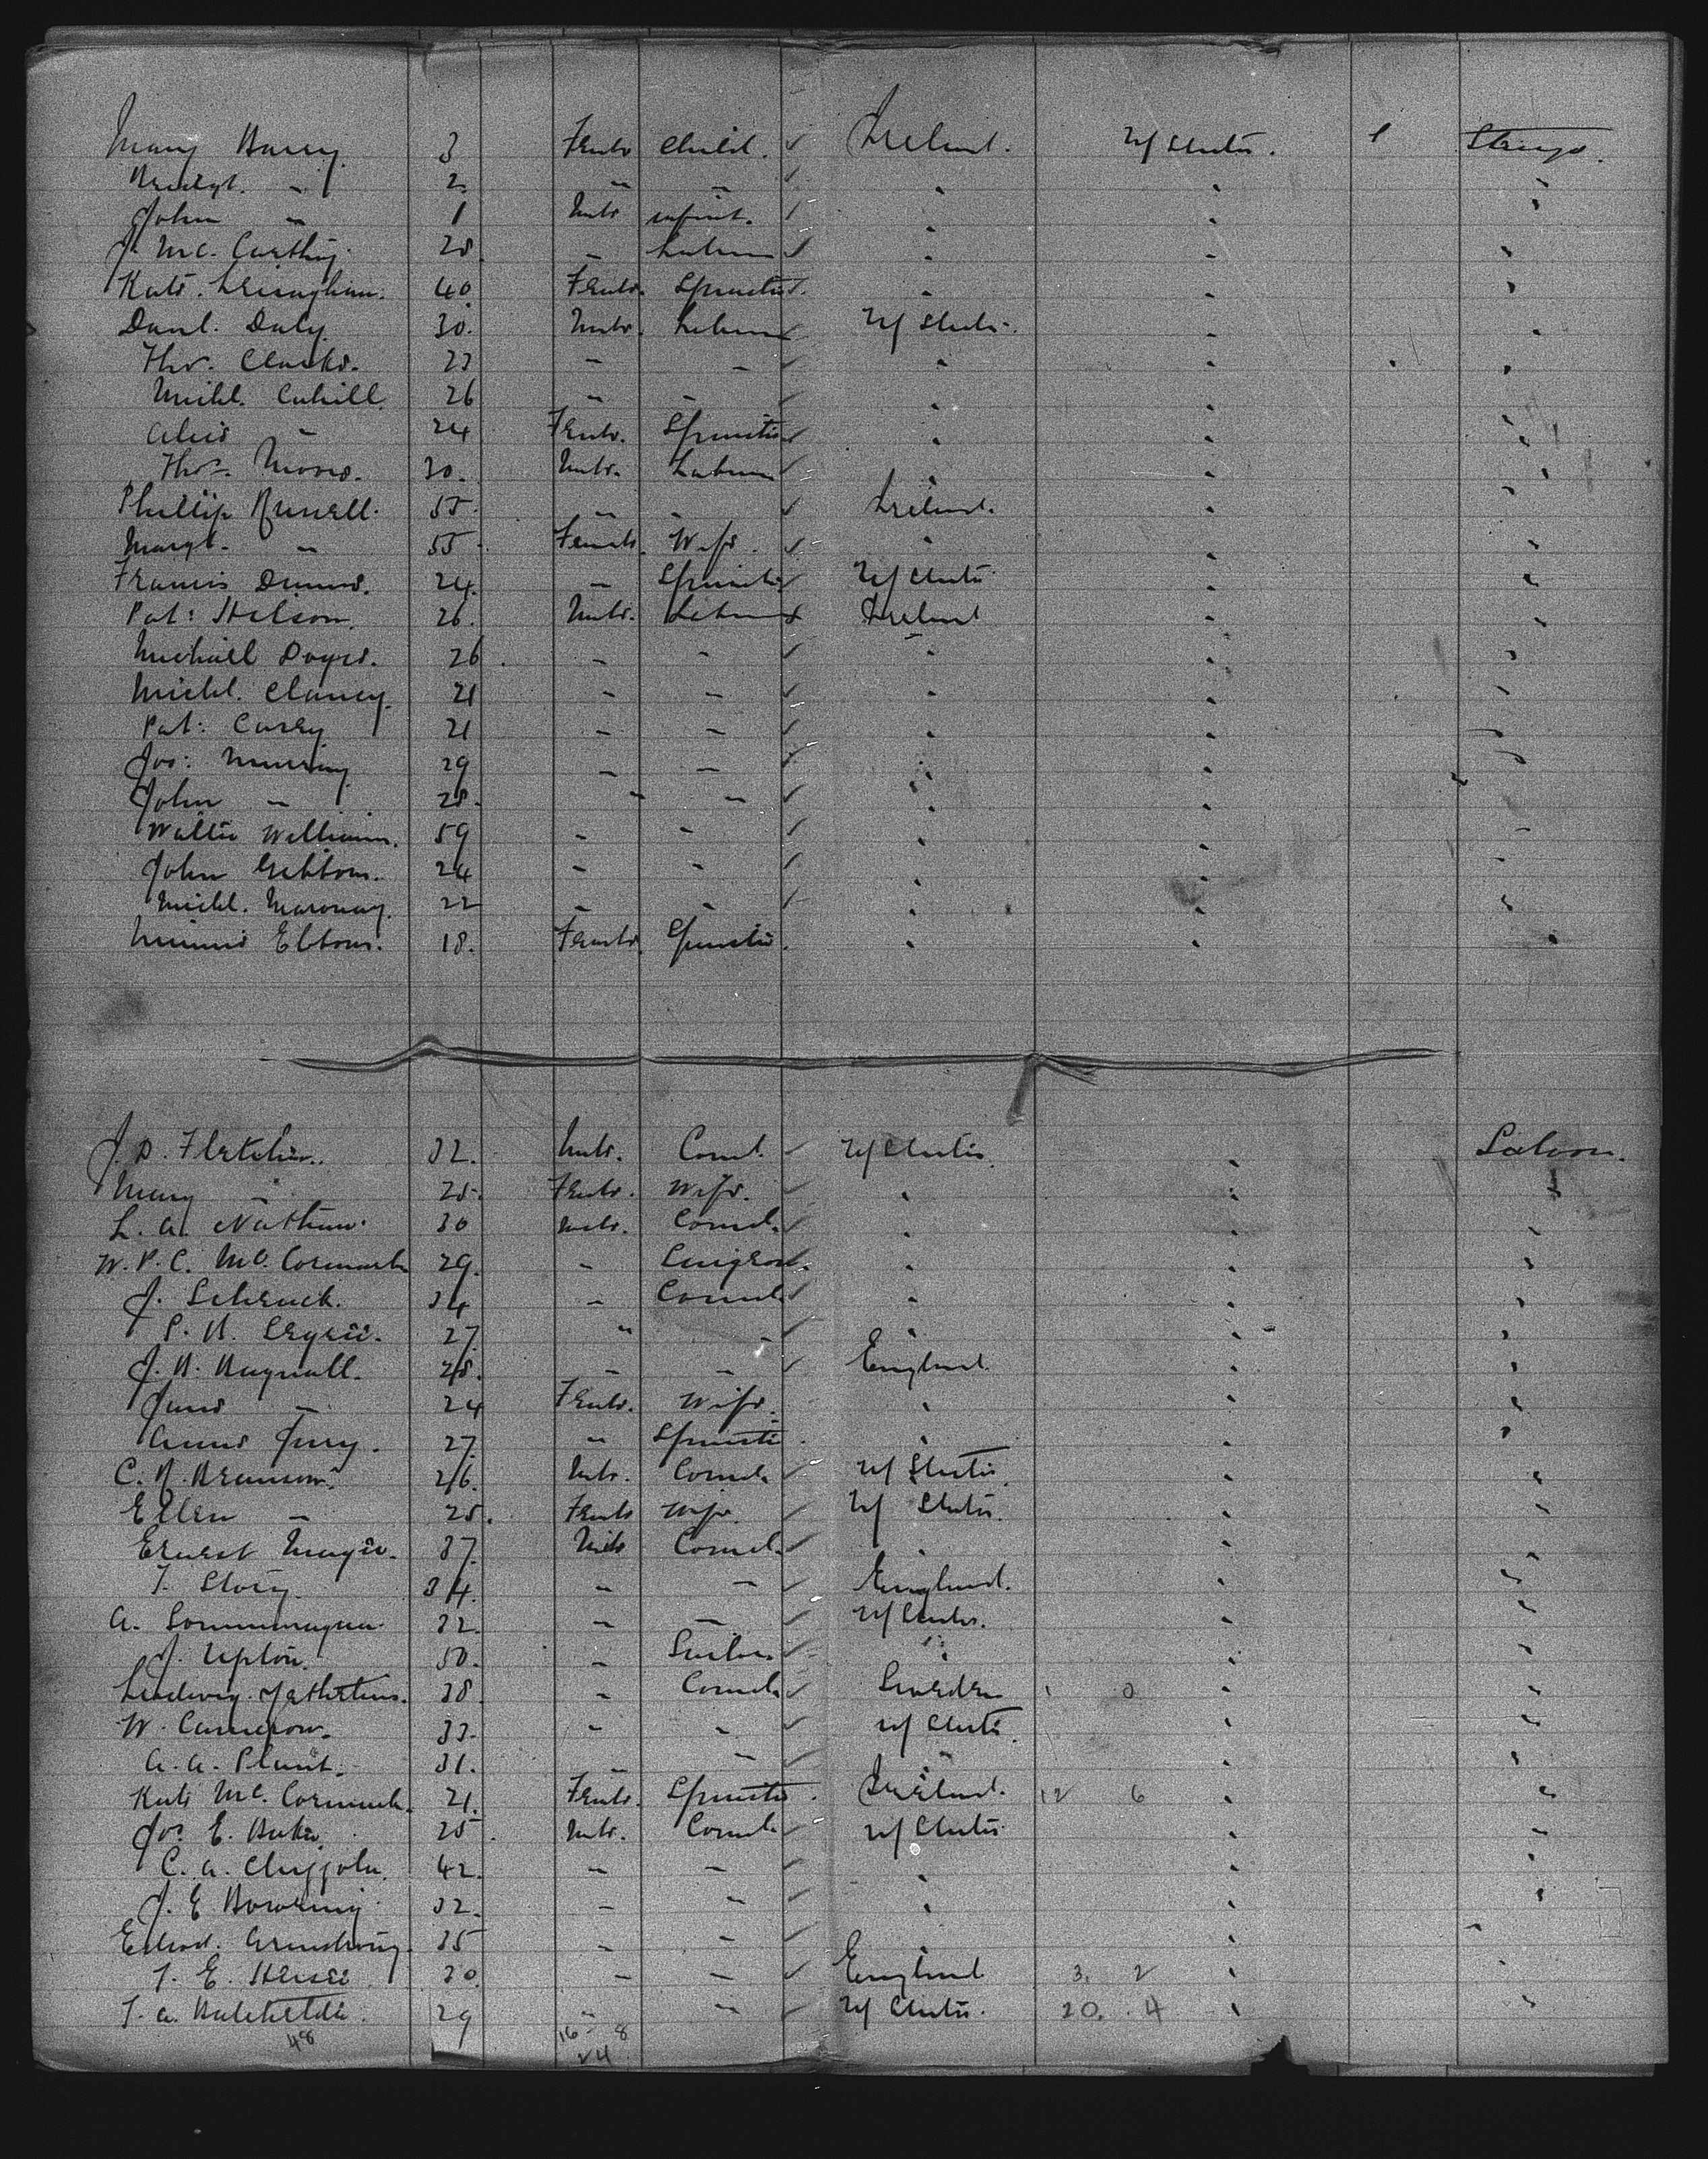 Mary Barry. 3 Female Child. Ireland. U/States. 1 Steerage.
Bridgt. " 2 " "
John " 1 Male infant.
J. Mc. Carthy. 28 " Laborer
Kate. 40 Female. Spinster.
Danl. Daly. 30. Male. Laborer U/States.
Thos. Clarke. 23 " "
Michl. Cahill. 26 " "
Alice " 24 Female. Spinster
Thos. Moore. 30. Male. Laborer
Phillip Russell. 55. " " Ireland.
Margt. " 55. Female. Wife.
Francis 24. " Spinster U/States
Pat: 26. Male. Laborer Ireland
Michael 26. " "
Michl. Clancy. 21 " "
Pat: Casey 21 " "
Jos: Murray 29 " "
John " 28. " "
Walter Williams. 59 " "
John Gibbons. 24 " "
Michl. Maroney. 22 " "
Minnie Ebbons. 18. Female Spinster.
J. D. Fletcher. 32. Male. Coml. U/States. Saloon.
Mary " 25. Female. Wife.
L. A. Nathan. 30 Male. Coml.
W. P. C. Mc. Cormack 29. " Surgeon.
J. Schenck. 34 " Coml.
27. " "
J. B. Bagnall. 28. " " England.
Jane " 24 Female. Wife.
Annie Jury. 27. " Spinster.
C. H. Branson. 26. Male. Coml. U/States
Ellen " 25. Female Wife. U/ States.
Ernest Mayer. 37. Male Coml.
T. Story. 34. " " England.
A. 32. " " U/States.
J. Upton. 50. " Sailor
Ludwig. 38. " Coml. Sweden 1 0
W. Cameron. 33. " " U/States.
A. A. Plant. 31. " "
Kate Mc. Cormack. 21. Female. Spinster. Ireland. 12 6
Jos. E. Baker. 25. Male. Coml. U/States.
C. A. 42. " "
J. E. Bowring 32. " "
Edwd. Armstrong. 35 " "
T. E. 30. " " England 3. 2
T. A. 29 " " U/States. 20. 4
48 16 - 8
24